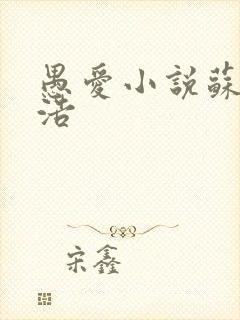 愚愛小說蘇
活
宋鑫